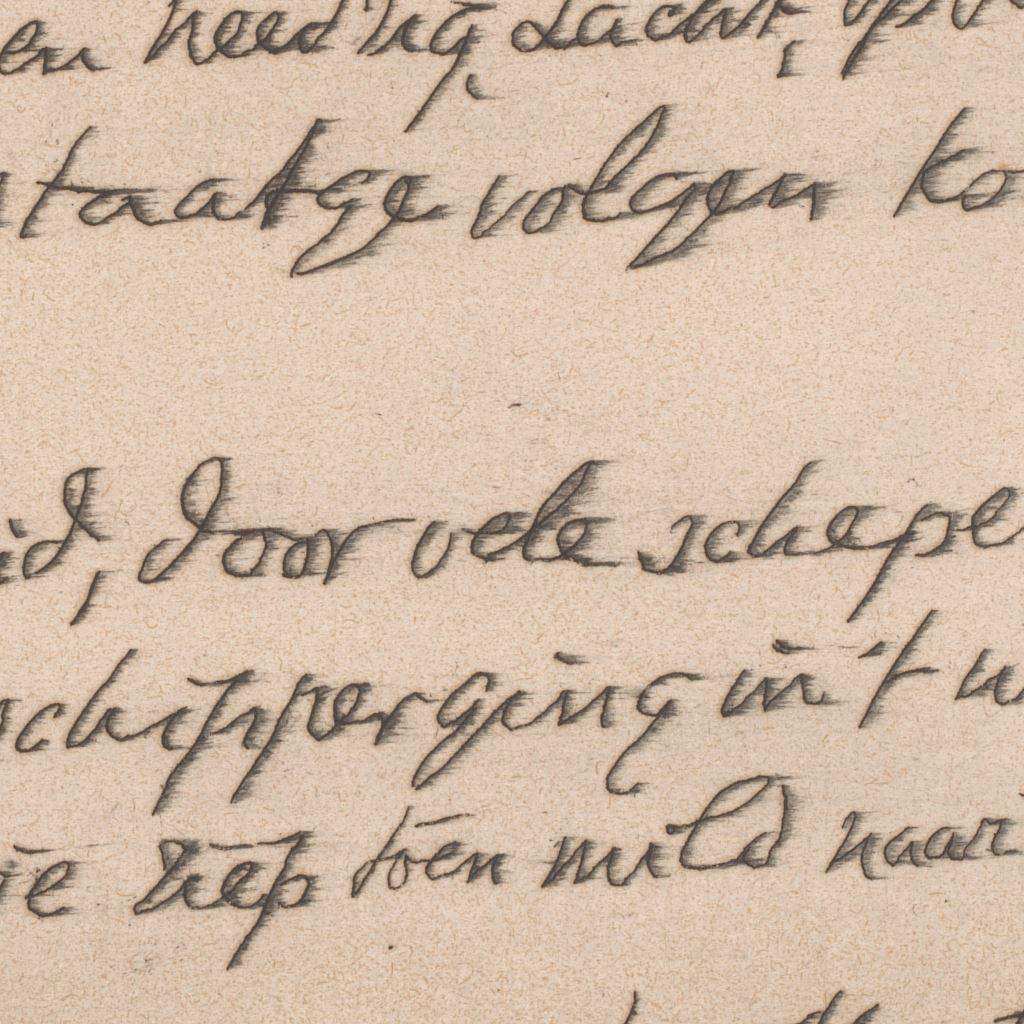 en heed'nig dacht,
staatge volgen ko
id, door vele schepe
schipper ging in 't
riep toen mild naar